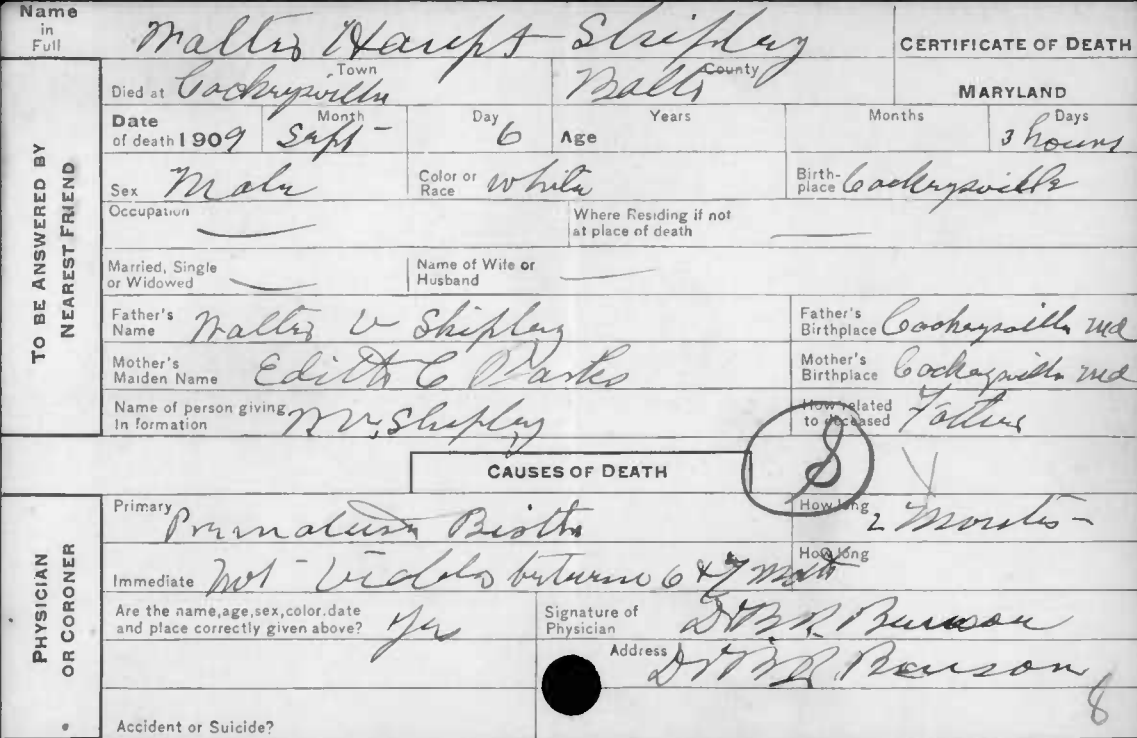 Name in Full Walter Haupt Shipley CERTIFICATE OF DEATH
Died at Cockeysville Town Balto County MARYLAND
Date of death 1909 Month Sept Day 6 Age Years Months Days 3 hours
Sex Male Color or Race white Birthplace Cockeysville
Occupation Where Residing if not at place of death
Married, Single or Widowed Name of Wife or Husband
Father's Name Walter V Shipley Father's Birthplace Cockeysville Md
Mother's Maiden Name Edith C Parks Mother's Birthplace Cockeysville Md
Name of person giving In formation W V Shipley How related to deceased Father
TO BE ANSWERED BY NEAREST FRIEND
CAUSES OF DEATH
S
Primary Premature Birth How long 2 Months
Immediate Not between 6 & 7 How long
Are the name, age, sex, color. date and place correctly given above? Yes Signature of Physician Dr B R Benson
Address Dr B R Benson
8
Accident or Suicide?
PHYSICIAN OR CORONER